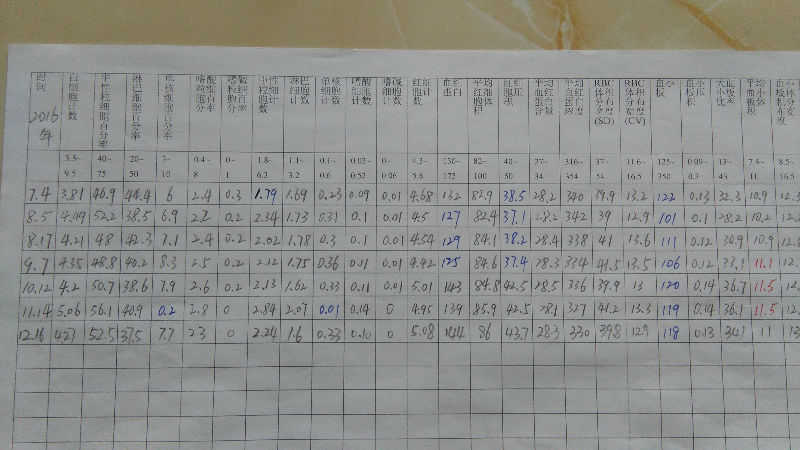 时间 白细胞计数 中性粒细胞百分率 淋巴细胞百分率 单核细胞百分率 嗜酸粒细胞百分率 嗜碱细胞百分率 中性粒细胞计数 淋巴细胞计数 单核细胞数 嗜酸细胞数 嗜碱细胞计数 红细胞计数 血红蛋白 平均红细胞体积 红细胞压积 平均血红蛋白含量 平均血红蛋白浓度 RBC体积分布宽度(SD) RBC体积分布宽度(CV) 血小板 血小板压积 大血小板比率 平均血小板体积
2016年
3.5-9.5 40-75 20-50 3-10 0.4-8 0-1 1.8-6.3 1.1-3.2 0.1-0.6 0.02-0.52 0-0.06 4.3-5.8 130-175 82-100 40-50 27-34 316-354 37-54 11.6-16.5 125-350 0.09-0.3 13-43 7.4-11 8.5-
7.4 3.81 46.9 44.4 6 2.4 0.3 1.79 1.69 0.23 0.09 0.01 4.68 132 82.9 38.5 28.2 340 39.9 13.2 122 0.13 32.3 10.9 12.
8.5 4.49 52.2 38.5 6.9 2.2 0.2 2.34 1.73 0.31 0.1 0.01 4.5 127 82.4 37.1 28.2 342 39 12.9 101 0.1 28.2 10.2
8.17 4.21 48 42.3 7.1 2.4 0.2 2.02 1.78 0.3 0.1 0.01 4.54 129 84.1 38.2 28.4 338 41 13.6 111 0.12 30.9 10.9 12.
9.7 4.35 48.8 40.2 8.3 2.5 0.2 2.12 1.75 0.36 0.11 0.01 4.42 125 84.6 37.4 28.3 334 41.5 13.5 106 0.12 33.1 11.1
10.12 4.2 50.7 38.6 7.9 2.6 0.2 2.13 1.62 0.33 0.11 0.01 5.01 143 84.8 42.5 28.5 336 39.9 13 120 0.14 36.7 11.5
11.14 5.06 56.1 40.9 0.2 2.8 0 2.84 2.07 0.01 0.14 0 4.95 139 85.9 42.5 28.1 327 41.2 13.3 119 0.14 36.1 11.5
12.16 4.27 52.5 37.5 7.7 2.3 0 2.24 1.6 0.33 0.10 0 5.08 144 86 43.7 28.3 330 39.8 12.9 118 0.13 34.1 11 13